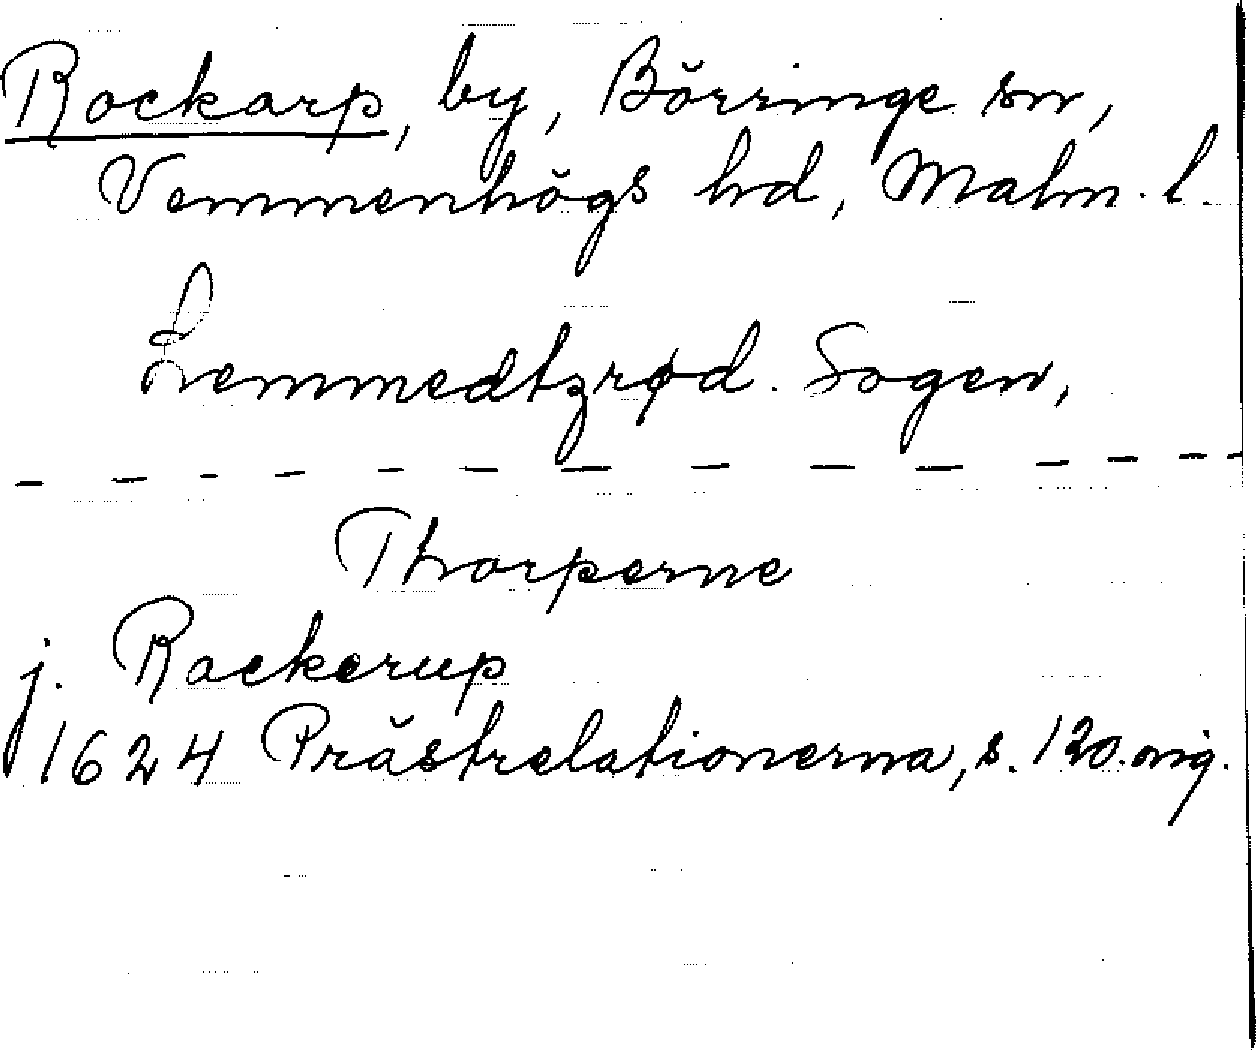 Rockarp, by, Börringe sn,
Vemmenhögs hd, Malm. l.
Lemmedtzrød. Sogen,
— — — — — — — — — — — — —
Thorperne
j. Rackerup
1624 Prästrelationerna, s. 120. orig.